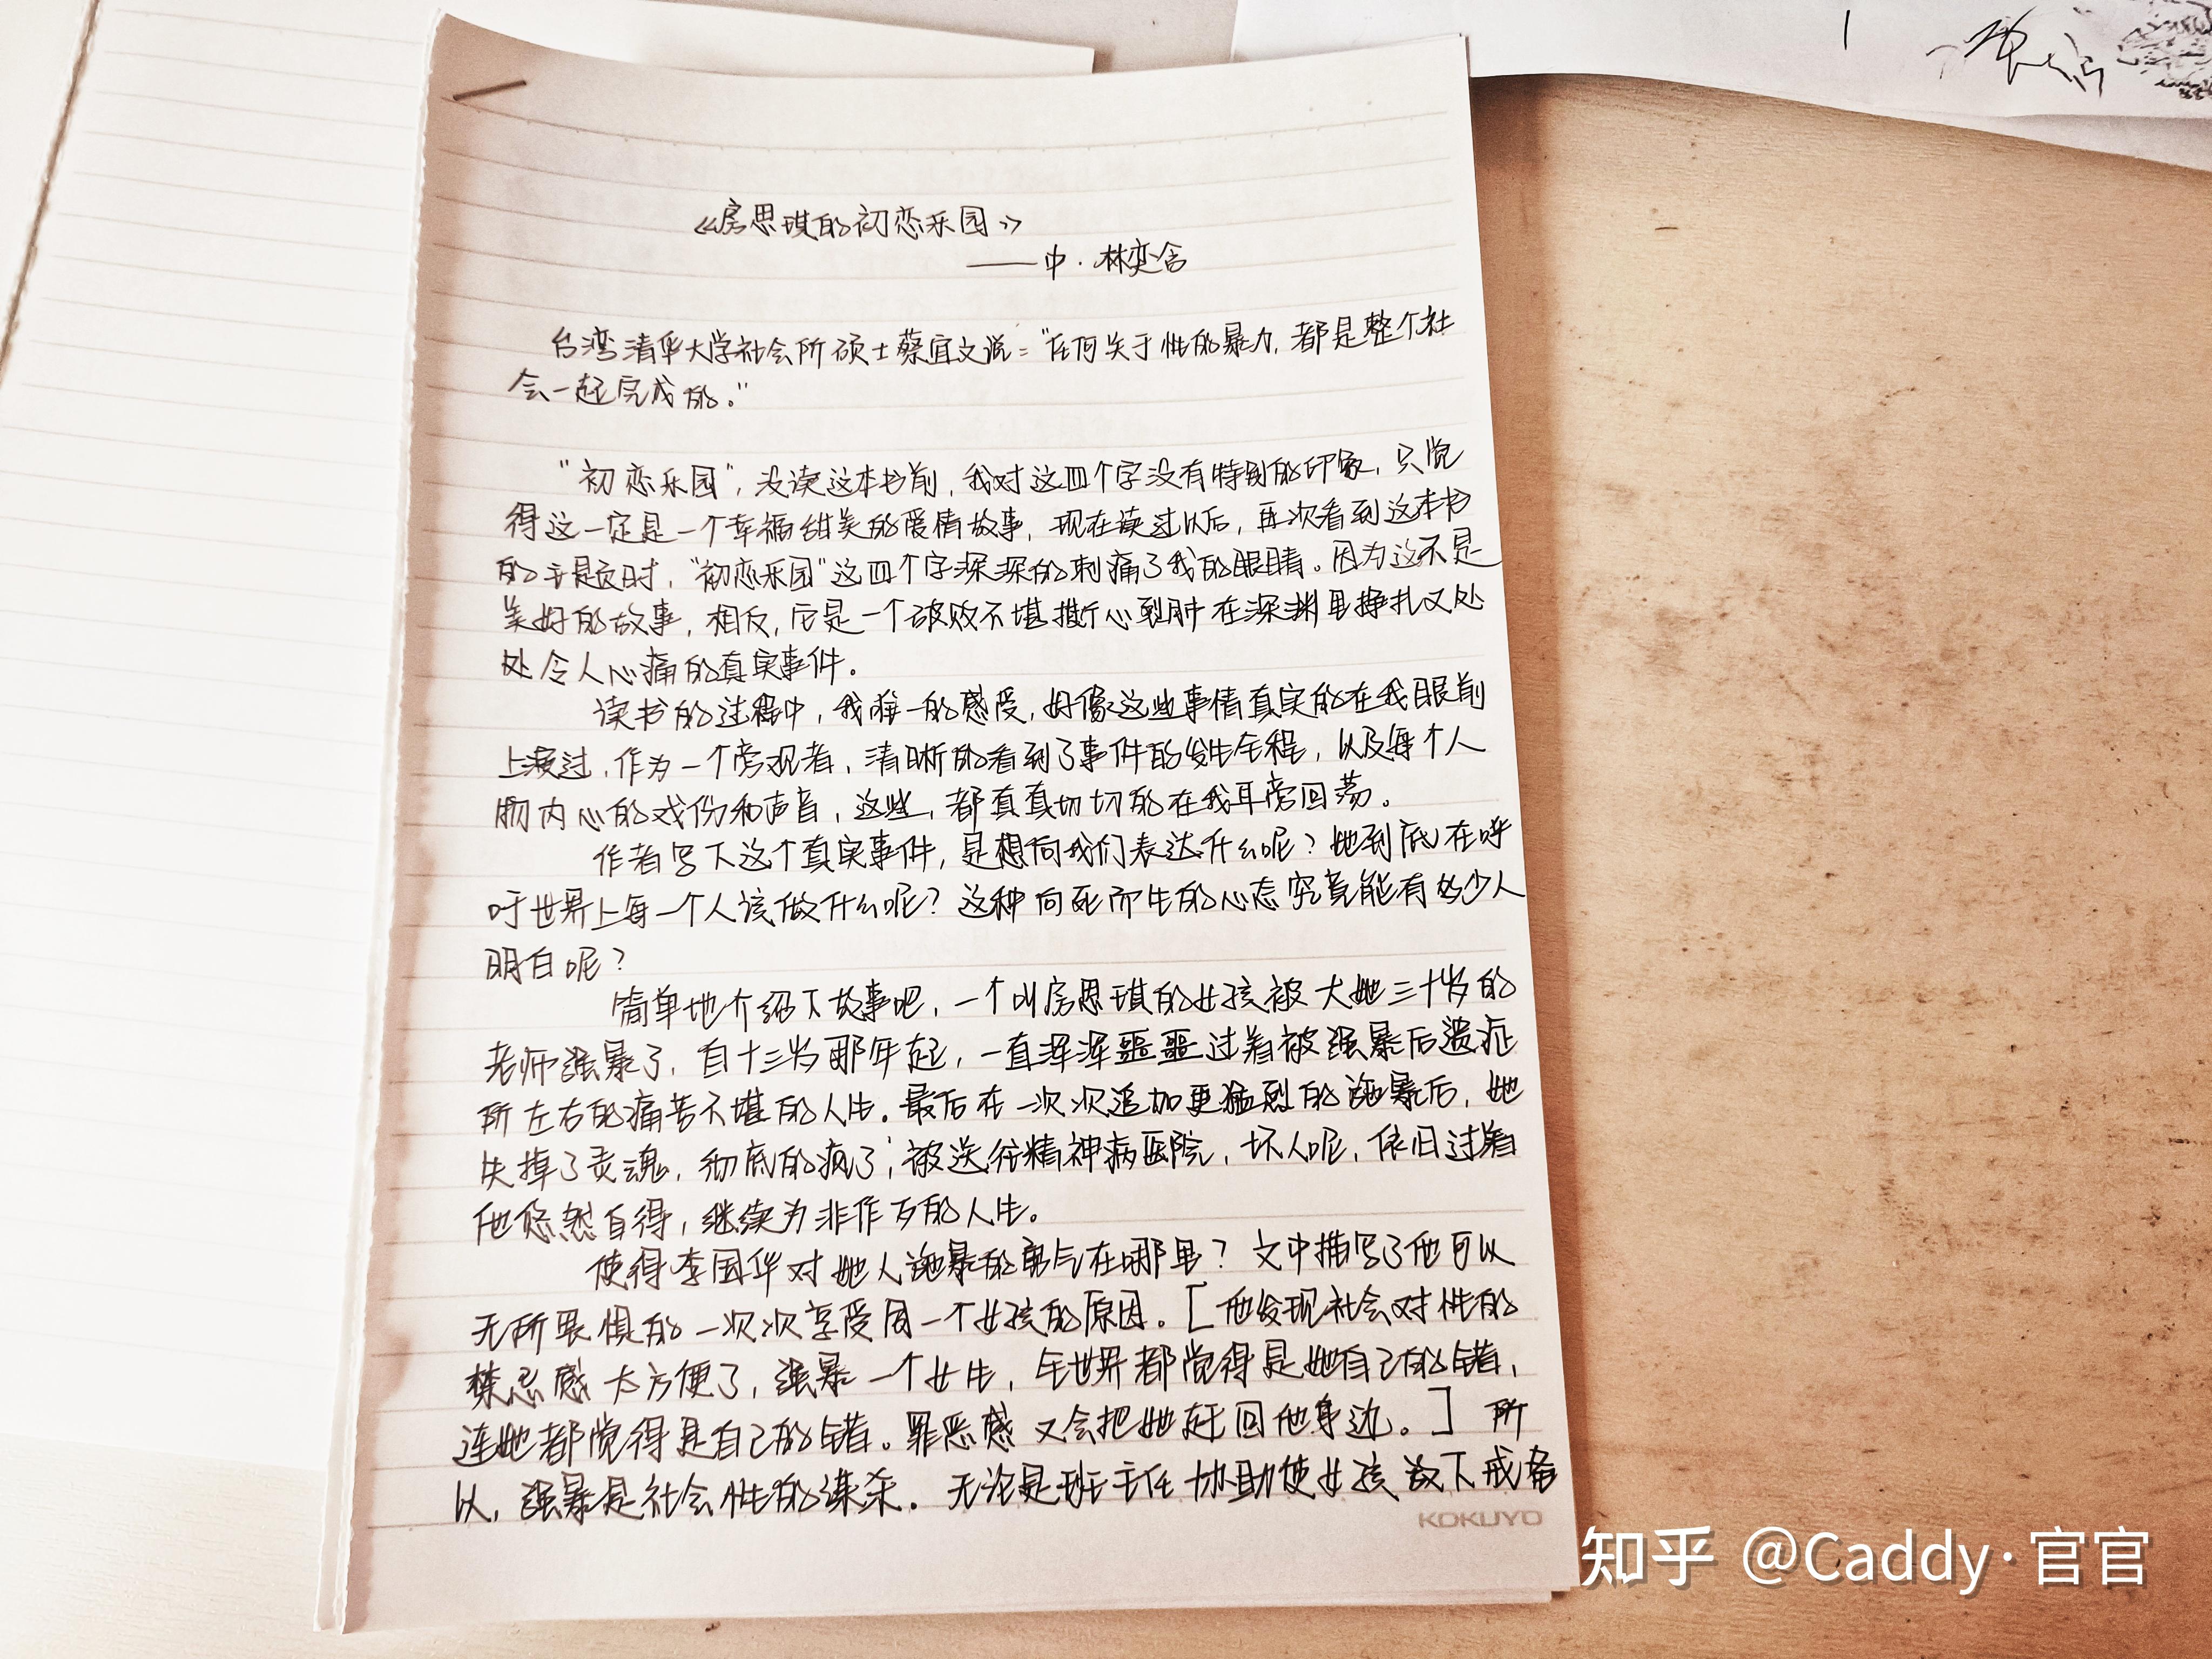 《房思琪的初恋乐园》
——中·林奕含
台湾清华大学社会所硕士蔡宜文说："任何关于性的暴力,都是整个社
会一起完成的。"
"初恋乐园",没读这本书前,我对这四个字没有特别的印象,只觉
得这一定是一个幸福甜美的爱情故事,现在读过以后,再次看到这本书
的主题时,"初恋乐园"这四个字深深的刺痛了我的眼睛。因为这不是
美好的故事,相反,它是一个破败不堪撕心裂肺在深渊里挣扎又处
处令人心痛的真实事件。
读书的过程中,我唯一的感受,好像这些事情真实的在我眼前
上演过,作为一个旁观者,清晰的看到了事件的发生全程,以及每个人
物内心的戏份和声音,这些,都真真切切的在我耳旁回荡。
作者写下这个真实事件,是想向我们表达什么呢?她到底在呼
吁世界上每一个人该做什么呢?这种向死而生的心态究竟能有多少人
明白呢?
简单地介绍下故事吧,一个叫房思琪的女孩被大她三十岁的
老师强暴了,自十三岁那年起,一直浑浑噩噩过着被强暴后遗症
所左右的痛苦不堪的人生.最后在一次次追加更猛烈的施暴后,她
失掉了灵魂,彻底的疯了;被送往精神病医院,坏人呢,依旧过着
他悠然自得,继续为非作歹的人生。
使得李国华对她人施暴的勇气在哪里?文中描写了他可以
无所畏惧的一次次享受同一个女孩的原因。[他发现社会对性的
禁忌感太方便了,强暴一个女生,全世界都觉得是她自己的错,
连她都觉得是自己的错。罪恶感又会把她赶回他身边。]所
以,强暴是社会性的谋杀.无论是班主任协助使女孩放下戒备
KOKUYO
知乎 @Caddy·官官